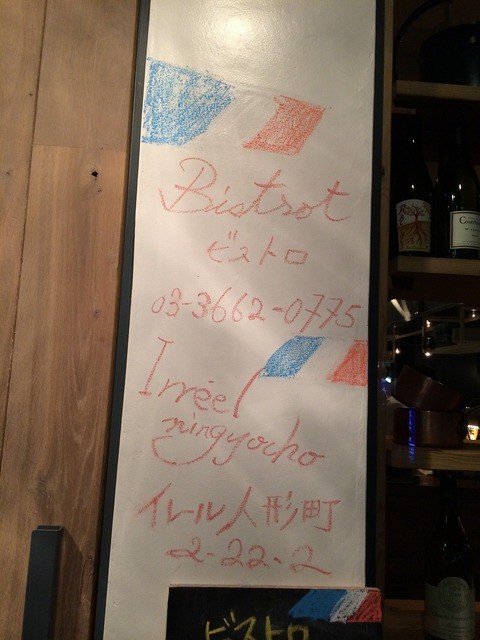 Bistrot
ビストロ
03-3662-0775
Irréel
ningyocho
イレル人形町
2-22-2
ビストロ